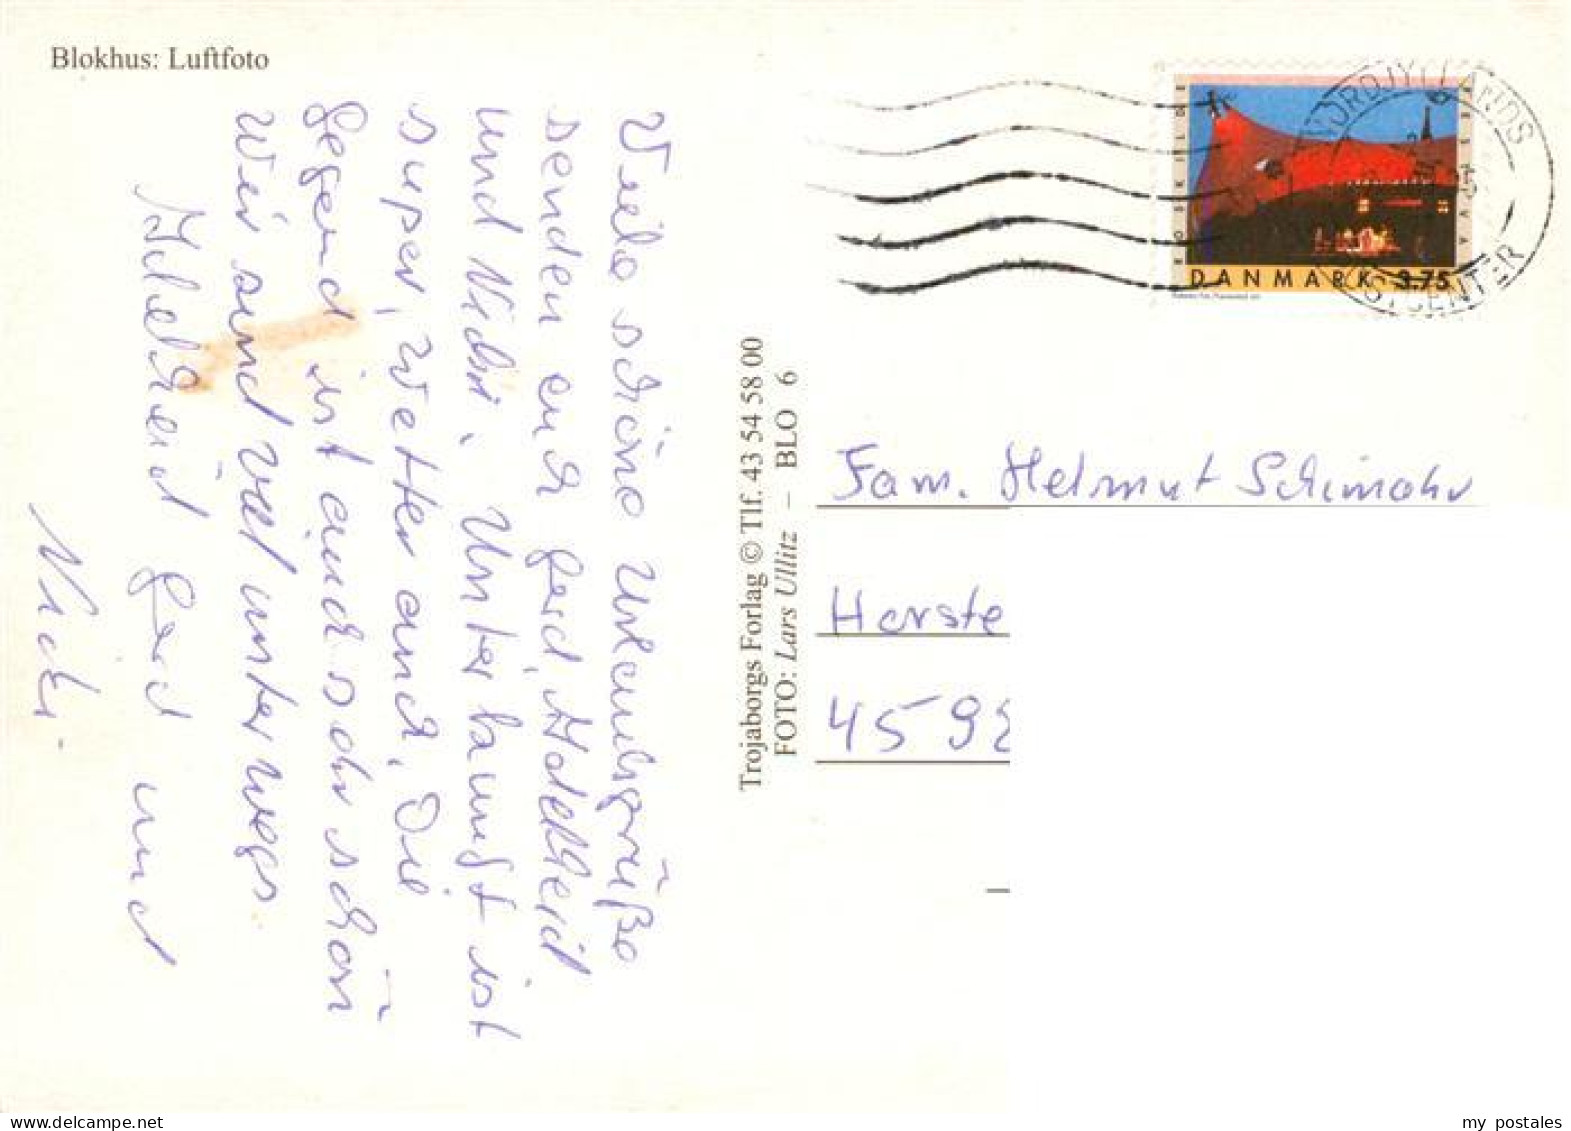 Blokhus: Luftfoto
Viele schöne Urlaubsgrüße
senden euch Gerd, Adelheid
und Nicki. Unterkunft ist
super, Wetter auch, Die
Gegend ist auch sehr schön
Wir sind viel unterwegs.
Adelheid Gerd und
Nicki.
Trojaborgs Forlag © Tlf. 43 54 58 00
FOTO: Lars Ullitz – BLO 6
ROSKILDE
FESTIVAL
DANMARK 3.75
NORDJYLLANDS
POSTCENTER
Fam. Helmut Schimohr
Horste
4592
my postales